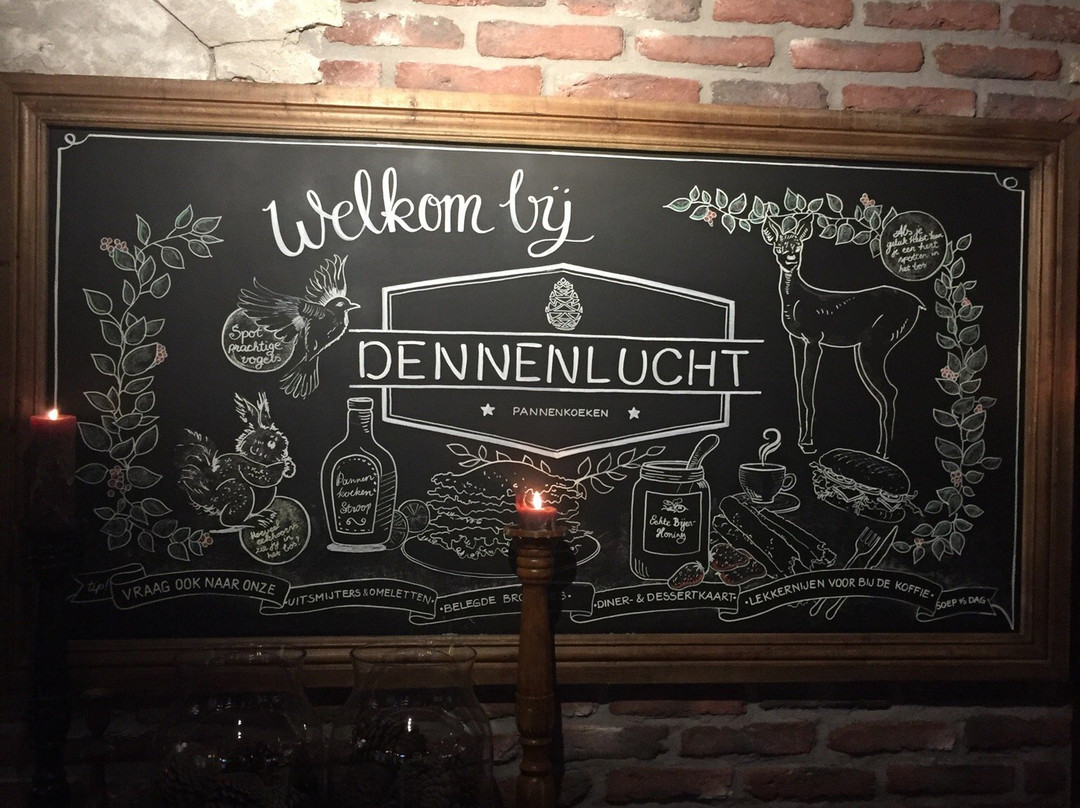 Welkom bij
Als je
geluk hebt kun
je een hert
spotten in
het bos
Spot
prachtige
vogels
DENNENLUCHT
PANNENKOEKEN
Pannen
koeken
Stroop
Echte Bijen
Honing
eekhoorn
zie jij in
het bos?
tip!
VRAAG OOK NAAR ONZE
UITSMIJTERS & OMELETTEN
BELEGDE
DINER- & DESSERTKAART
LEKKERNIJEN VOOR BIJ DE KOFFIE
SOEP DAG